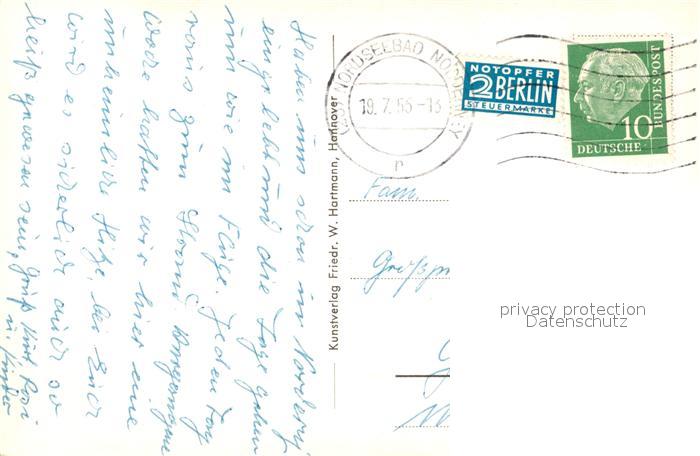 Haben uns schon in Norderney
eingelebt und die Tage gehen
nun wie im Fluge. Jeden Tag
raus zum Strand. Vergangene
Woche hatten wir hier eine
unheimliche Hitze, bei Euch
wird es sicherlich auch so
heiß gewesen sein. Gruß
u. Kinder
Kunstverlag Friedr. W. Hartmann, Hannover
NORDSEEBAD NORDERNEY
19.7.56-13
NOTOPFER
2 BERLIN
STEUERMARKE
10
DEUTSCHE
BUNDESPOST
Fam.
privacy protection
Datenschutz